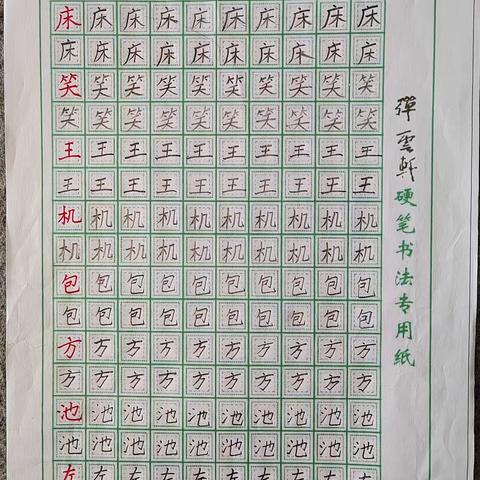 床床床床床床床床床床
床床床床床床床床床床
笑笑笑笑笑笑笑笑笑笑
笑笑笑笑笑笑笑笑笑笑
王王王王王王王王王王
王王王王王王王王王王
机机机机机机机机机机
机机机机机机机机机机
包包包包包包包包包包
包包包包包包包包包包
方方方方方方方方方方
方方方方方方方方方方
池池池池池池池池池池
池池池池池池池池池池
左左左左左左左左左左
彈雲軒硬笔书法专用纸